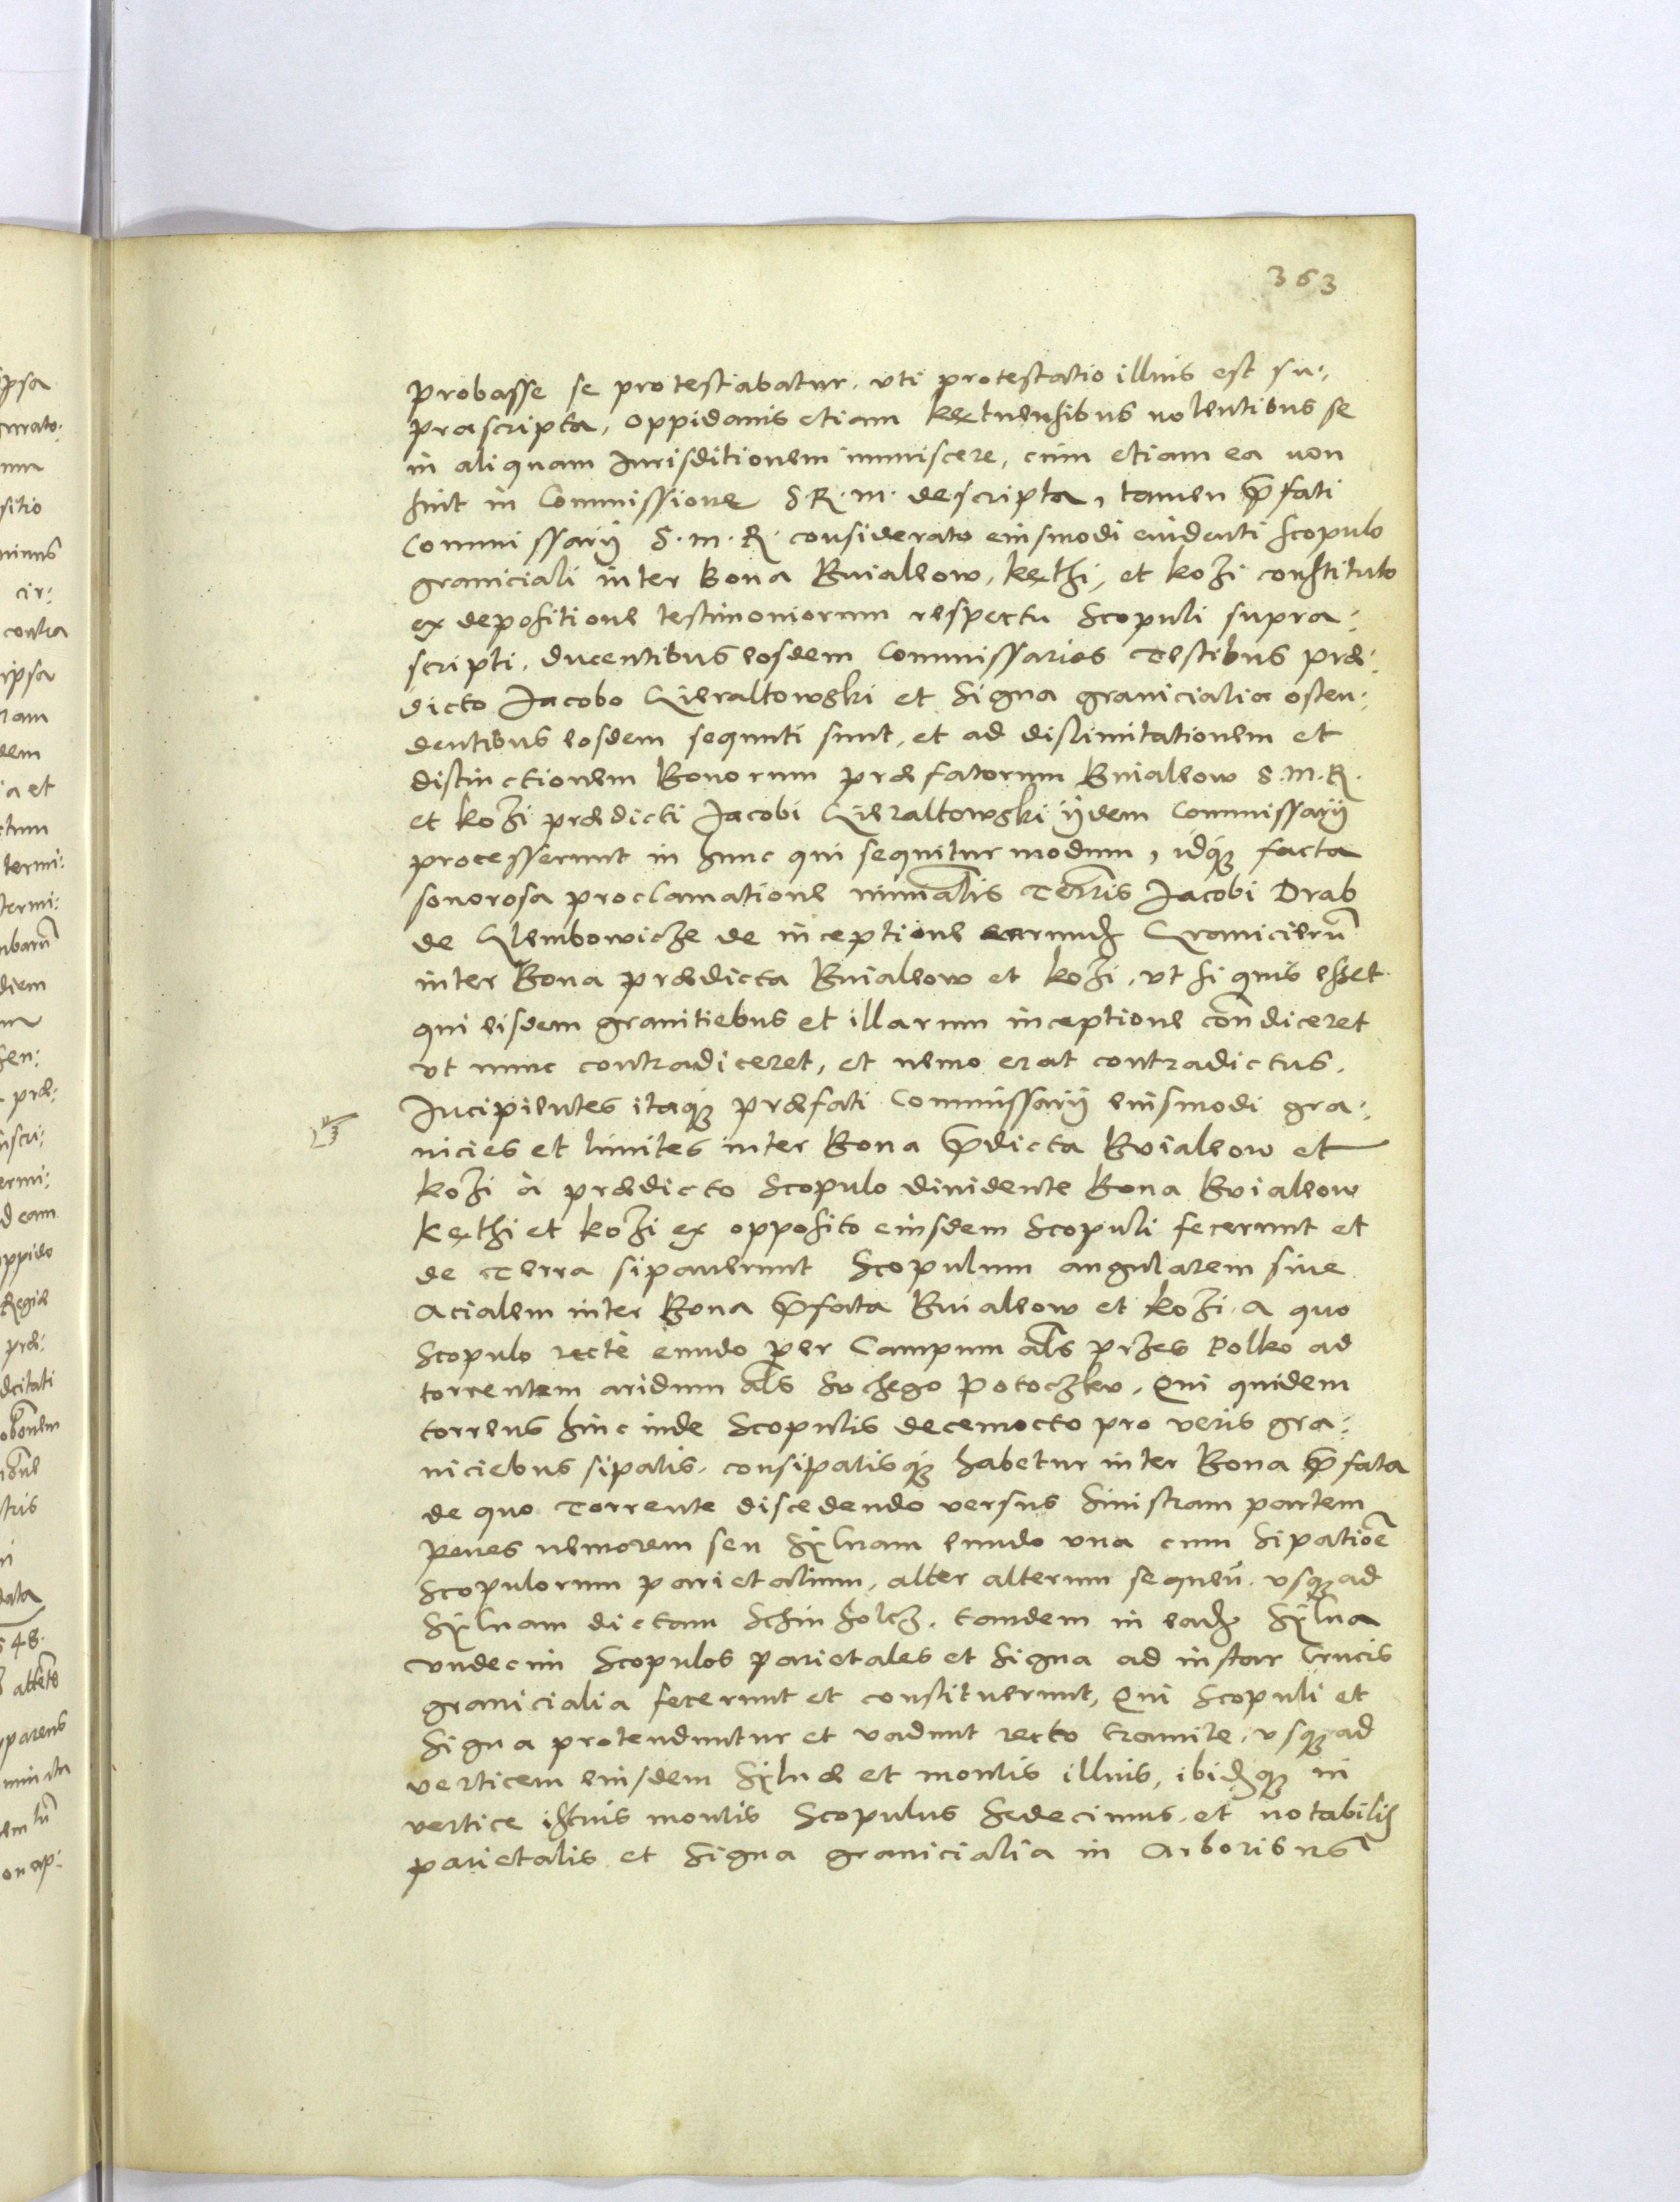 363
probasse se protestabatur. vti protestatio illius est su:
prascripta, oppidanis etiam kęctuensibus nolentibus se
in aliquam Iurisditionem immiscere, cum etiam ea non
sint in Commissione S.R.M. descripta, tamen p̄fati
Commissarij S.M.R. considerato eiusmodi euidenti scopulo
graniciali inter bona Buiakow, kęthi, et kozi constituto
ex depositione testimoniorum respectu Scopuli supra:
scripti. ducentibus eosdem Commissarios Testibus præ:
dicto Jacobo Gieraltowski et Signa granicialia osten:
dentibus eosdem sequuti sunt, et ad dislimitationem et
distinctionem Bonorum præfatorum Buiakow S.M.R.
et kozi prædicti Jacobi Gieraltowski ijdem Commissarij
processerunt in hunc qui sequitur modum, idq; facta
sonorosa proclamatione minālis Terris Jacobi Drab
de Glembowicze de inceptione earund Granicierū
inter Bona prædicta Buiakow et kozi, vt si quis esset
qui eisdem granitiebus et illarum inceptione contdiceret
vt nunc contradiceret, et nemo erat contradictus.
Incipientes itaq; præfati Commissarij eiusmodi gra:
nicies et limites inter Bona p̄dicta Bviakow et
kozi à prædicto Scopulo diuidente Bona Bviakow
kęthi et kozi ex opposito eiusdem Scopuli fecerunt et
de Terra sipauerunt Scopulum angularem siue
acialem inter Bona p̄fata Buiakow et kozi. a quo
Scopulo rectè eundo per Campum als przes Polko ad
torrentem aridum als Suchego Potoczku, Qui quidem
torrens hinc inde Scopulis decemocto pro veris gra:
niciebus sipatis. consipatisq; habetur inter Bona p̄fata
de quo Torrente discedendo versus Sinistram partem
penes nemorem seu Sÿluam eundo vna cum Sipatioē
Scopulorum parietalium, alter alterum sequeñ. vsq; ad
Sÿluam dictam Schinholcz. tandem in ead Sÿlua
vndecim Scopulos parietales et Signa ad instar Crucis
granicialia fecerunt et constituerunt, Qui Scopuli et
Signa protenduntur et vadunt recto tramite, vsq; ad
verticem eiusdem Sÿluæ et montis illius, ibidq; in
vertice istius montis Scopulus Sedecimus. et notabilis
parietalis et Signa granicialia in Arboribus